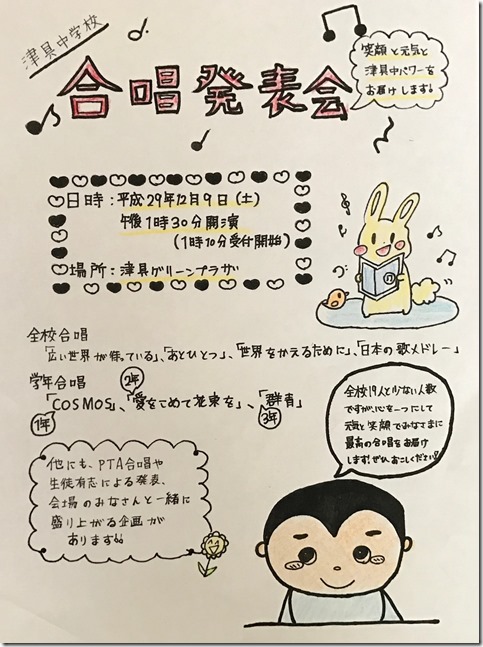 津具中学校
合唱発表会
笑顔と元気と
津具中パワーを
お届けします!
日時:平成29年12月9日(土)
午後1時30分開演
(1時10分受付開始)
場所:津具グリーンプラザ
全校合唱
「広い世界が待っている」、「あとひとつ」、「世界をかえるために」、「日本の歌メドレー」
学年合唱
2年
「COSMOS」、「愛をこめて花束を」、「群青」
1年
3年
全校19人と少ない人数
ですが、心を一つにして
元気と笑顔でみなさまに
最高の合唱をお届け
します!ぜひ、おこしください!
他にも、PTA合唱や
生徒有志による発表、
会場のみなさんと一緒に
盛り上がる企画が
あります!!